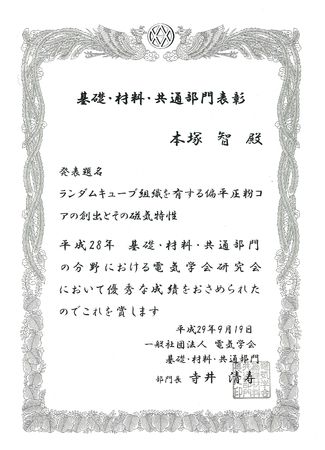 基礎・材料・共通部門表彰
本塚 智 殿
発表題名
ランダムキューブ組織を有する偏平圧粉コ
アの創出とその磁気特性
平成28年 基礎・材料・共通部門
の分野における電気学会研究会
において優秀な成績をおさめられた
のでこれを賞します
平成29年9月19日
一般社団法人 電気学会
基礎・材料・共通部門
部門長 寺井 清寿